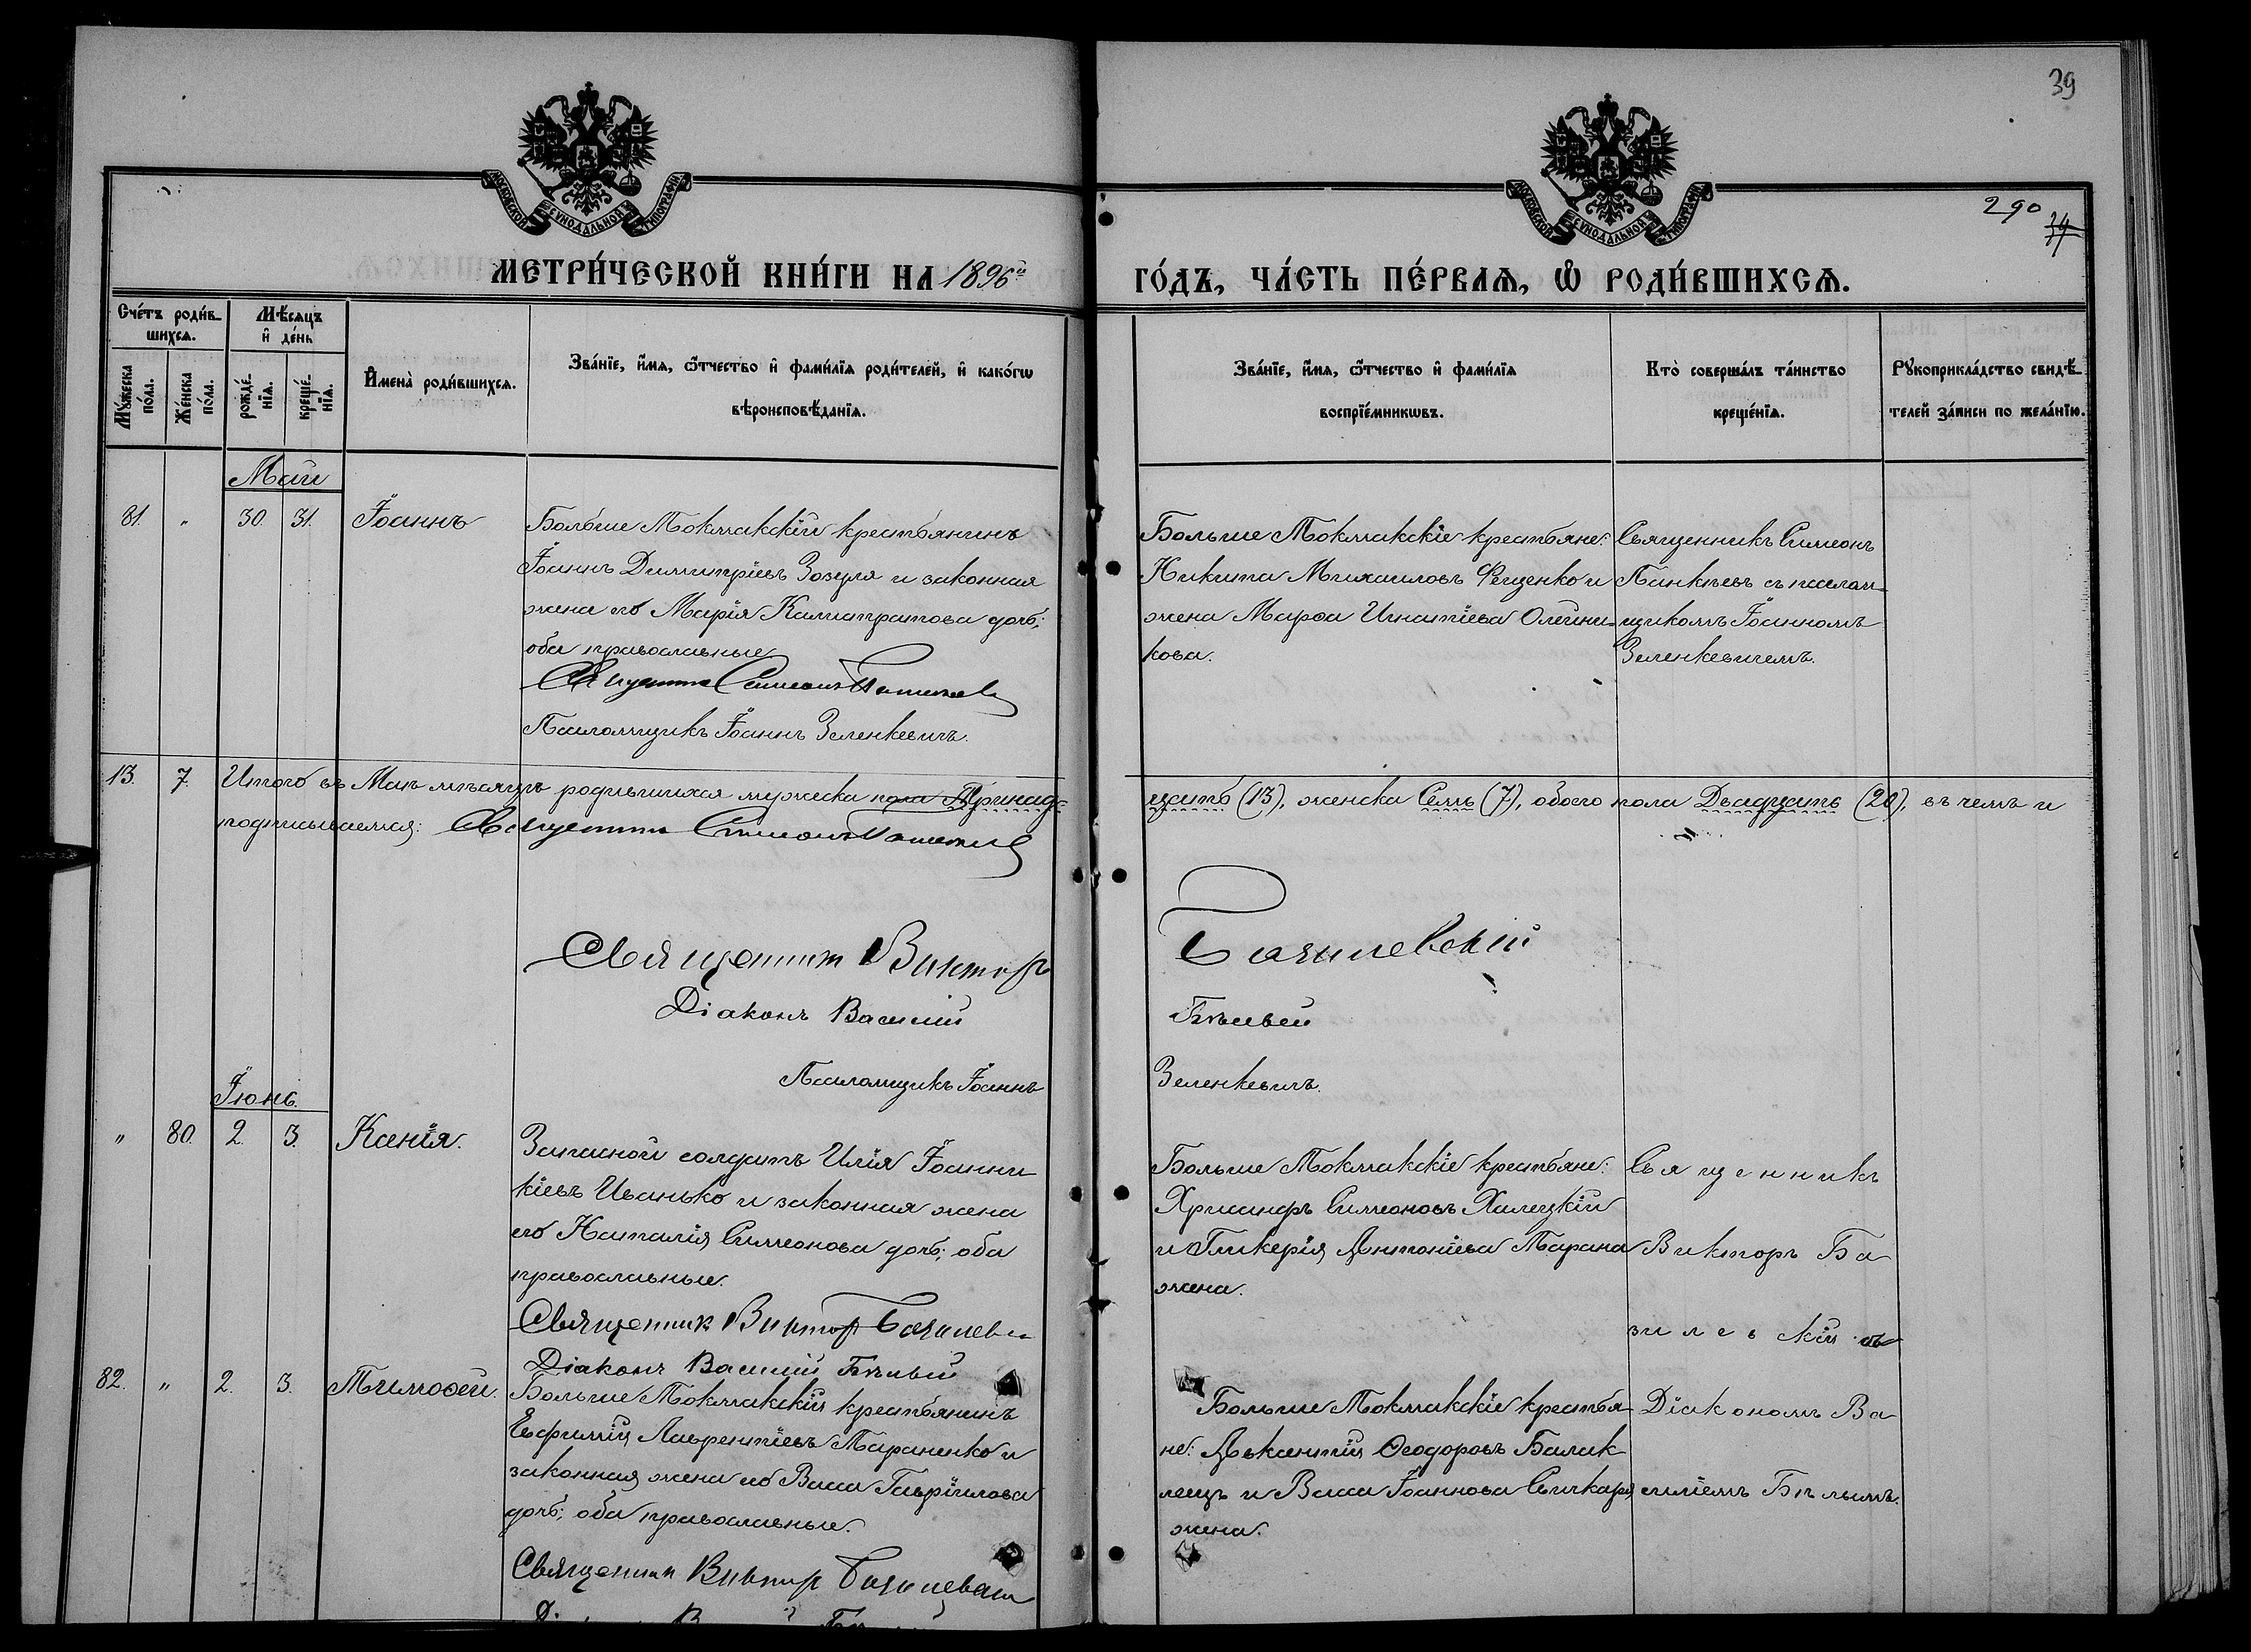 39
МОСКОВСКОЙ СѴНОДАЛЬНОЙ ТИПОГРАФІИ
МОСКОВСКОЙ СѴНОДАЛЬНОЙ ТИПОГРАФІИ
290
МЕТРИ́ЧЕСКОЙ КНИ́ГИ НА 1896й
ГО́ДЪ, ЧА́СТЬ ПЕ́РВАѦ, Ѡ РОДИ́ВШИХСѦ.
Сче́тъ роди́в-
шихсѧ.
Мꙋ́жеска по́ла.
Же́нска по́ла.
Мѣ́сяцъ
и҆ де́нь
рожде́-
нїѧ.
креще́-
нїѧ.
И҆мена̀ роди́вшихсѧ.
Зва́нїе, и҆́мѧ, ѻ҆́тчество и҆ фами́лїѧ роди́телей, и҆ како́гѡ
вѣроисповѣ́данїѧ.
Зва́нїе, и҆́мѧ, ѻ҆́тчество и҆ фами́лїѧ
воспрїе́мникѡвъ.
Кто̀ соверша́лъ та́инство
креще́нїѧ.
Рꙋкоприкла́дство свидѣ́-
телей за́писи по жела́нїю.
Май
81. " 30. 31. Іоаннъ
Больше Токмакскій крестьянинъ
Іоаннъ Димитріевъ Зозуля и законная
жена его Марія Калистратова дочь;
оба православные
Священникъ Симеонъ Панкѣевъ
Псаломщикъ Іоаннъ Зеленкевичъ.
Больше Токмакскіе крестьяне:
Никита Михаиловъ Фещенко и
жена Марѳа Игнатіева Олейни-
кова.
Священникъ Симеонъ
Панкѣевъ съ псалом-
щикомъ Іоанномъ
Зеленкевичемъ.
13. 7. Итого въ Маѣ мѣсяцѣ родившихся мужеска пола Тринад-
цать (13), женска Семь (7), обоего пола Двадцать (20), въ чемъ и
подписываемся: Священникъ Симеонъ Панкѣевъ
Священник Викторъ Базилевскій
Діаконъ Василий Бѣлый
Псаломщикъ Іоаннъ Зеленкевичъ.
Іюнь.
" 80. 2. 3. Ксенія.
Запасной солдатъ Илія Іоанни-
кіевъ Иванько и законная жена
его Наталія Симеонова дочь; оба
православные.
Священник Виктор Базилевс
Діаконъ Василий Бѣлый
Больше Токмакскіе крестьяне:
Хрисанфъ Симеоновъ Халецкій
и Гликерія Антоніева Тарана
жена.
Священникъ
Викторъ Ба
зилевскій съ
82. " 2. 3. Тимоѳей.
Больше Токмакскій крестьянинъ
Евфимій Лаврентіевъ Тараненко и
законная жена его Васса Гавріилова
дочь; оба православные.
Священник Виктор Базилевски
Больше Токмакскіе крестья-
не: Авксентій Ѳеодоровъ Балак-
лецъ и Васса Іоаннова Сичкаря
жена.
Діакономъ Ва
силіемъ Бѣлымъ.